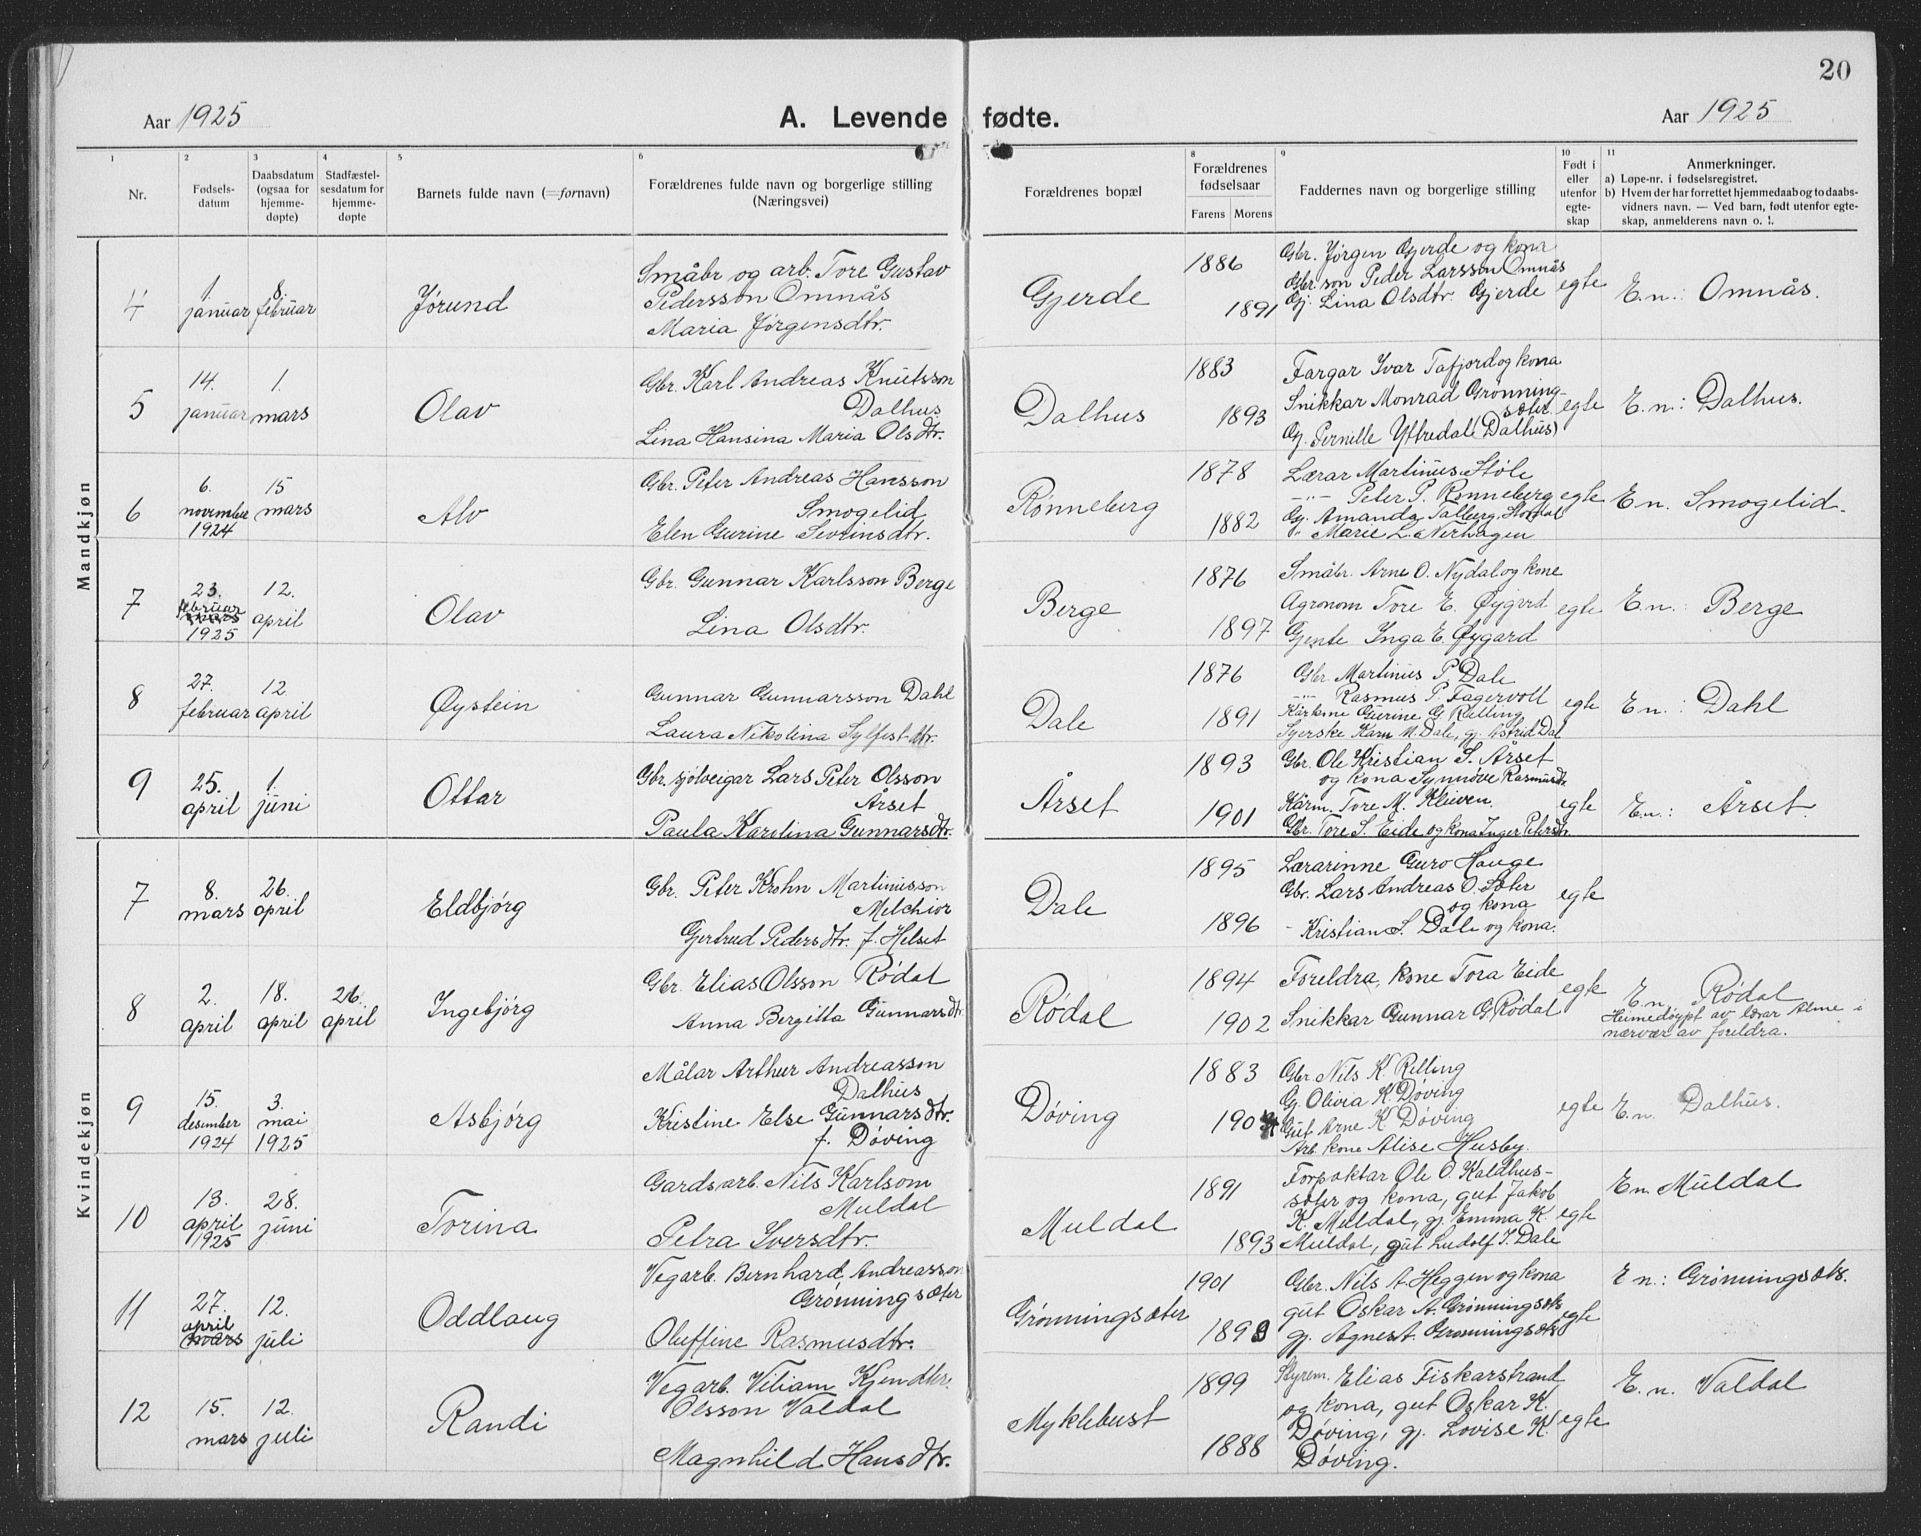 20
Aar 1925
A. Levende fødte.
Aar 1925
1 2 3 4 5 6 8 9 10 11
Nr.
Fødsels-
datum
Daabsdatum
(ogsaa for
hjemme-
døpte)
Stadfæstel-
sesdatum for
hjemme-
døpte
Barnets fulde navn (=fornavn)
Forældrenes fulde navn og borgerlige stilling
(Næringsvei)
Forældrenes bopæl
Forældrenes
fødselsaar
Farens Morens
Faddernes navn og borgerlige stilling
Født i
eller
utenfor
egte-
skap
Anmerkninger.
a) Løpe-nr. i fødselsregistret.
b) Hvem der har forrettet hjemmedaab og to daabs-
vidners navn. — Ved barn, født utenfor egte-
skap, anmelderens navn o. l.
Mandkjøn
4
1
januar
8.
februar
Jørund
Småbr og arb. Tore Gustav
Pedersson Omnås
Maria Jørgensdtr.
Gjerde
1886
1891
Gbr. Jørgen Gjerde og kona
Gbr. son Peder Larsson Omnås
Gj. Lina Olsdtr. Gjerde
egte
E. n.: Omnås.
5
14.
januar
1.
mars
Olav
Gbr. Karl Andreas Knutsson
Dalhus
Lina Hansina Maria Olsdtr.
Dalhus
1883
1893
Fargar Ivar Tafjord og kona
Snikkar Monrad Grønning-
sæter
Gj. Pernille Yttredal (Dalhus)
egte
E. n.: Dalhus.
6
6.
november
1924
15
mars
Alv
Gbr. Peter Andreas Hansson
Smogelid
Elen Gurine Sevrinsdtr.
Rønneberg
1878
1882
Lærar Martinus Støle
—"— Peter P. Rønneberg
Gj. Amanda Talberg, Stordal
" Marie L. Nerhagen
egte
E. n. Smogelid.
7
23.
februar
mars
1925
12.
april
Olav
Gbr. Gunnar Karlsson Berge
Lina Olsdtr.
Berge
1876
1897
Småbr. Arne O. Nydal og kone
Agronom Tore E. Øygard
Gjente Inga E. Øygard
egte
E. n.: Berge
8
27.
februar
12
april
Øystein
Gunnar Gunnarsson Dahl
Laura Nikolina Sylfest-dtr.
Dale
1876
1891
Gbr. Martinus P. Dale
—"— Rasmus P. Fagervoll
Kårkone Gurine G. Relling
Syerske Karn M. Dale, gj. Astrid Dal
egte
E n.: Dahl
9
25.
april
1.
juni
Ottar
Gbr. sjølveigar Lars Peter Olsson
Årset
Paula Karolina Gunnarsdtr.
Årset
1893
1901
Gbr. Ole Kristian S. Årset
og kona Synnøve Rasmusdtr.
Kårm. Tore M. Kleven.
Gbr. Tore S. Eide og kona Inger Petersdtr.
egte
E.n.: Årset.
Kvindekjøn
7
8.
mars
26.
april
Eldbjørg
Gbr. Peter Krohn Martinusson
Melchior
Gjertrud Pedersdtr. f. Helset
Dale
1895
1896
Lærarinne Guro Hauge
Gbr. Lars Andreas O. Sæter
og kona
- Kristian S. Dale og kona.
egte
8
2.
april
18.
april
26.
april
Ingebjørg
Gbr. Elias Olsson Rødal
Anna Bergitta Gunnarsdtr.
Rødal
1894
1902
Foreldra, kone Tora Eide
Snikkar Gunnar G. Rødal
egte
E. n. Rødal
Heimedøypt av lærar Alme i
nærvær av foreldra.
9
15.
desember
1924
3.
mai
1925
Asbjørg
Målar Arthur Andreasson
Dalhus
Kristine Else Gunnarsdtr.
f. Døving
Døving
1883
190
Gbr. Nils K. Relling
G. Olivia K. Døving
Gut Arne K. Døving
Arb. kone Alise Husby.
egte
E. n. Dalhus.
10
13.
april
1925
28.
juni
Torina
Gardsarb. Nils Karlsom
Muldal
Petra Iversdtr.
Muldal
1891
1893
Forpaktar Ole O. Kaldhus-
sæter og kona, gut Jakob
K. Muldal, gj. Emma K.
Muldal, gut Ludolf J. Dale
egte
E n. Muldal
11
27.
april
mars
12.
juli
Oddlaug
Vegarb. Bernhard Andreasson
Grønningsæter
Oluffine Rasmusdtr.
Grønningsæter
1901
1899
Gbr. Nils A. Heggen og kona
gut Oskar A. Grønningsæt.
gj. Agnes A. Grønningsæt.
egte
E n.: Grønningsæt.
12
15.
mars
12.
juli
Randi
Vegarb. Viliam
Olsson Valdal
Magnhild Hansdtr.
Myklebust
1899
1888
Styrem. Elias Fiskarstrand
og kona, gut Oskar K.
Døving, gj. Lovise K.
Døving.
egte
E. n. Valdal